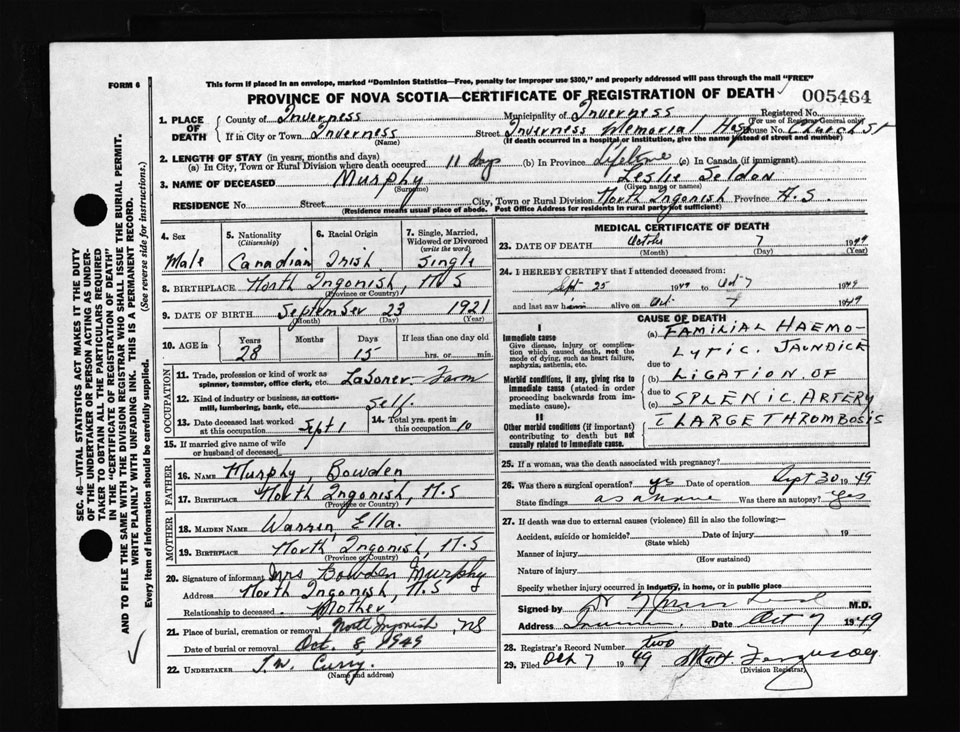 FORM 6
This form if placed in an envelope, marked "Dominion Statistics—Free, penalty for improper use $300," and properly addressed will pass through the mail "FREE"
PROVINCE OF NOVA SCOTIA—CERTIFICATE OF REGISTRATION OF DEATH 005464
1. PLACE OF DEATH
County of Inverness Municipality of Inverness Registered No.
(For use of Registrar General only)
If in City or Town Inverness Street Inverness Memorial Hosp House No. Church St
(Name) (If death occurred in a hospital or institution, give the name instead of street and number)
2. LENGTH OF STAY (in years, months and days)
(a) In City, Town or Rural Division where death occurred 11 days (b) In Province Lifetime (c) In Canada (if immigrant)
3. NAME OF DECEASED Murphy Leslie Seldon
(Surname) (Given name or names)
RESIDENCE No. Street City, Town or Rural Division North Ingonish Province N.S.
(Residence means usual place of abode. Post Office Address for residents in rural parts not sufficient)
4. Sex Male
5. Nationality (Citizenship) Canadian
6. Racial Origin Irish
7. Single, Married, Widowed or Divorced (write the word) Single
8. BIRTHPLACE North Ingonish, N.S
(Province or Country)
9. DATE OF BIRTH September 23 1921
(Month) (Day) (Year)
10. AGE in Years 28 Months Days 15 If less than one day old
hrs. or min.
OCCUPATION
11. Trade, profession or kind of work as spinner, teamster, office clerk, etc. Laborer - Farm
12. Kind of industry or business, as cotton-mill, lumbering, bank, etc. Self.
13. Date deceased last worked at this occupation Sept 1
14. Total yrs. spent in this occupation 10
15. If married give name of wife or husband of deceased
FATHER
16. NAME Murphy, Bowden
17. BIRTHPLACE North Ingonish, N.S
(Province or Country)
MOTHER
18. MAIDEN NAME Warren, Ella.
19. BIRTHPLACE North Ingonish, N.S
(Province or Country)
20. Signature of informant Mrs Bowden Murphy
Address North Ingonish, N.S
Relationship to deceased Mother
21. Place of burial, cremation or removal North Ingonish, NS
Date of burial or removal Oct. 8, 1949
22. UNDERTAKER J.W. Curry.
(Name and address)
MEDICAL CERTIFICATE OF DEATH
23. DATE OF DEATH October 7 1949
(Month) (Day) (Year)
24. I HEREBY CERTIFY that I attended deceased from:
Sept 25 1949 to Oct 7 1949
and last saw him alive on Oct 7 1949
CAUSE OF DEATH
I
Immediate cause
Give disease, injury or complication which caused death, not the mode of dying, such as heart failure, asphyxia, asthenia, etc.
Morbid conditions, if any, giving rise to immediate cause (stated in order proceeding backwards from immediate cause).
II
Other morbid conditions (if important) contributing to death but not causally related to immediate cause.
(a) FAMILIAL HAEMO-
LYTIC. JAUNDICE
due to
(b) LIGATION OF
due to
(c) SPLENIC. ARTERY
C LARGE THROMBOSIS
25. If a woman, was the death associated with pregnancy?
26. Was there a surgical operation? yes Date of operation Sept 30 1949
State findings as above Was there an autopsy? Yes
27. If death was due to external causes (violence) fill in also the following:—
Accident, suicide or homicide? Date of injury 19
(State which)
Manner of injury
(How sustained)
Nature of injury
Specify whether injury occurred in industry, in home, or in public place
Signed by M.D.
Address Date Oct 7 1949
28. Registrar's Record Number two
29. Filed Oct 7 1949 Ferguson
(Division Registrar)
SEC. 46—VITAL STATISTICS ACT MAKES IT THE DUTY
OF THE UNDERTAKER OR PERSON ACTING AS UNDER-
TAKER TO OBTAIN ALL THE PARTICULARS REQUIRED
IN THE "CERTIFICATE OF REGISTRATION OF DEATH"
AND TO FILE THE SAME WITH THE DIVISION REGISTRAR WHO SHALL ISSUE THE BURIAL PERMIT.
WRITE PLAINLY WITH UNFADING INK. THIS IS A PERMANENT RECORD.
Every item of information should be carefully supplied. (See reverse side for instructions.)